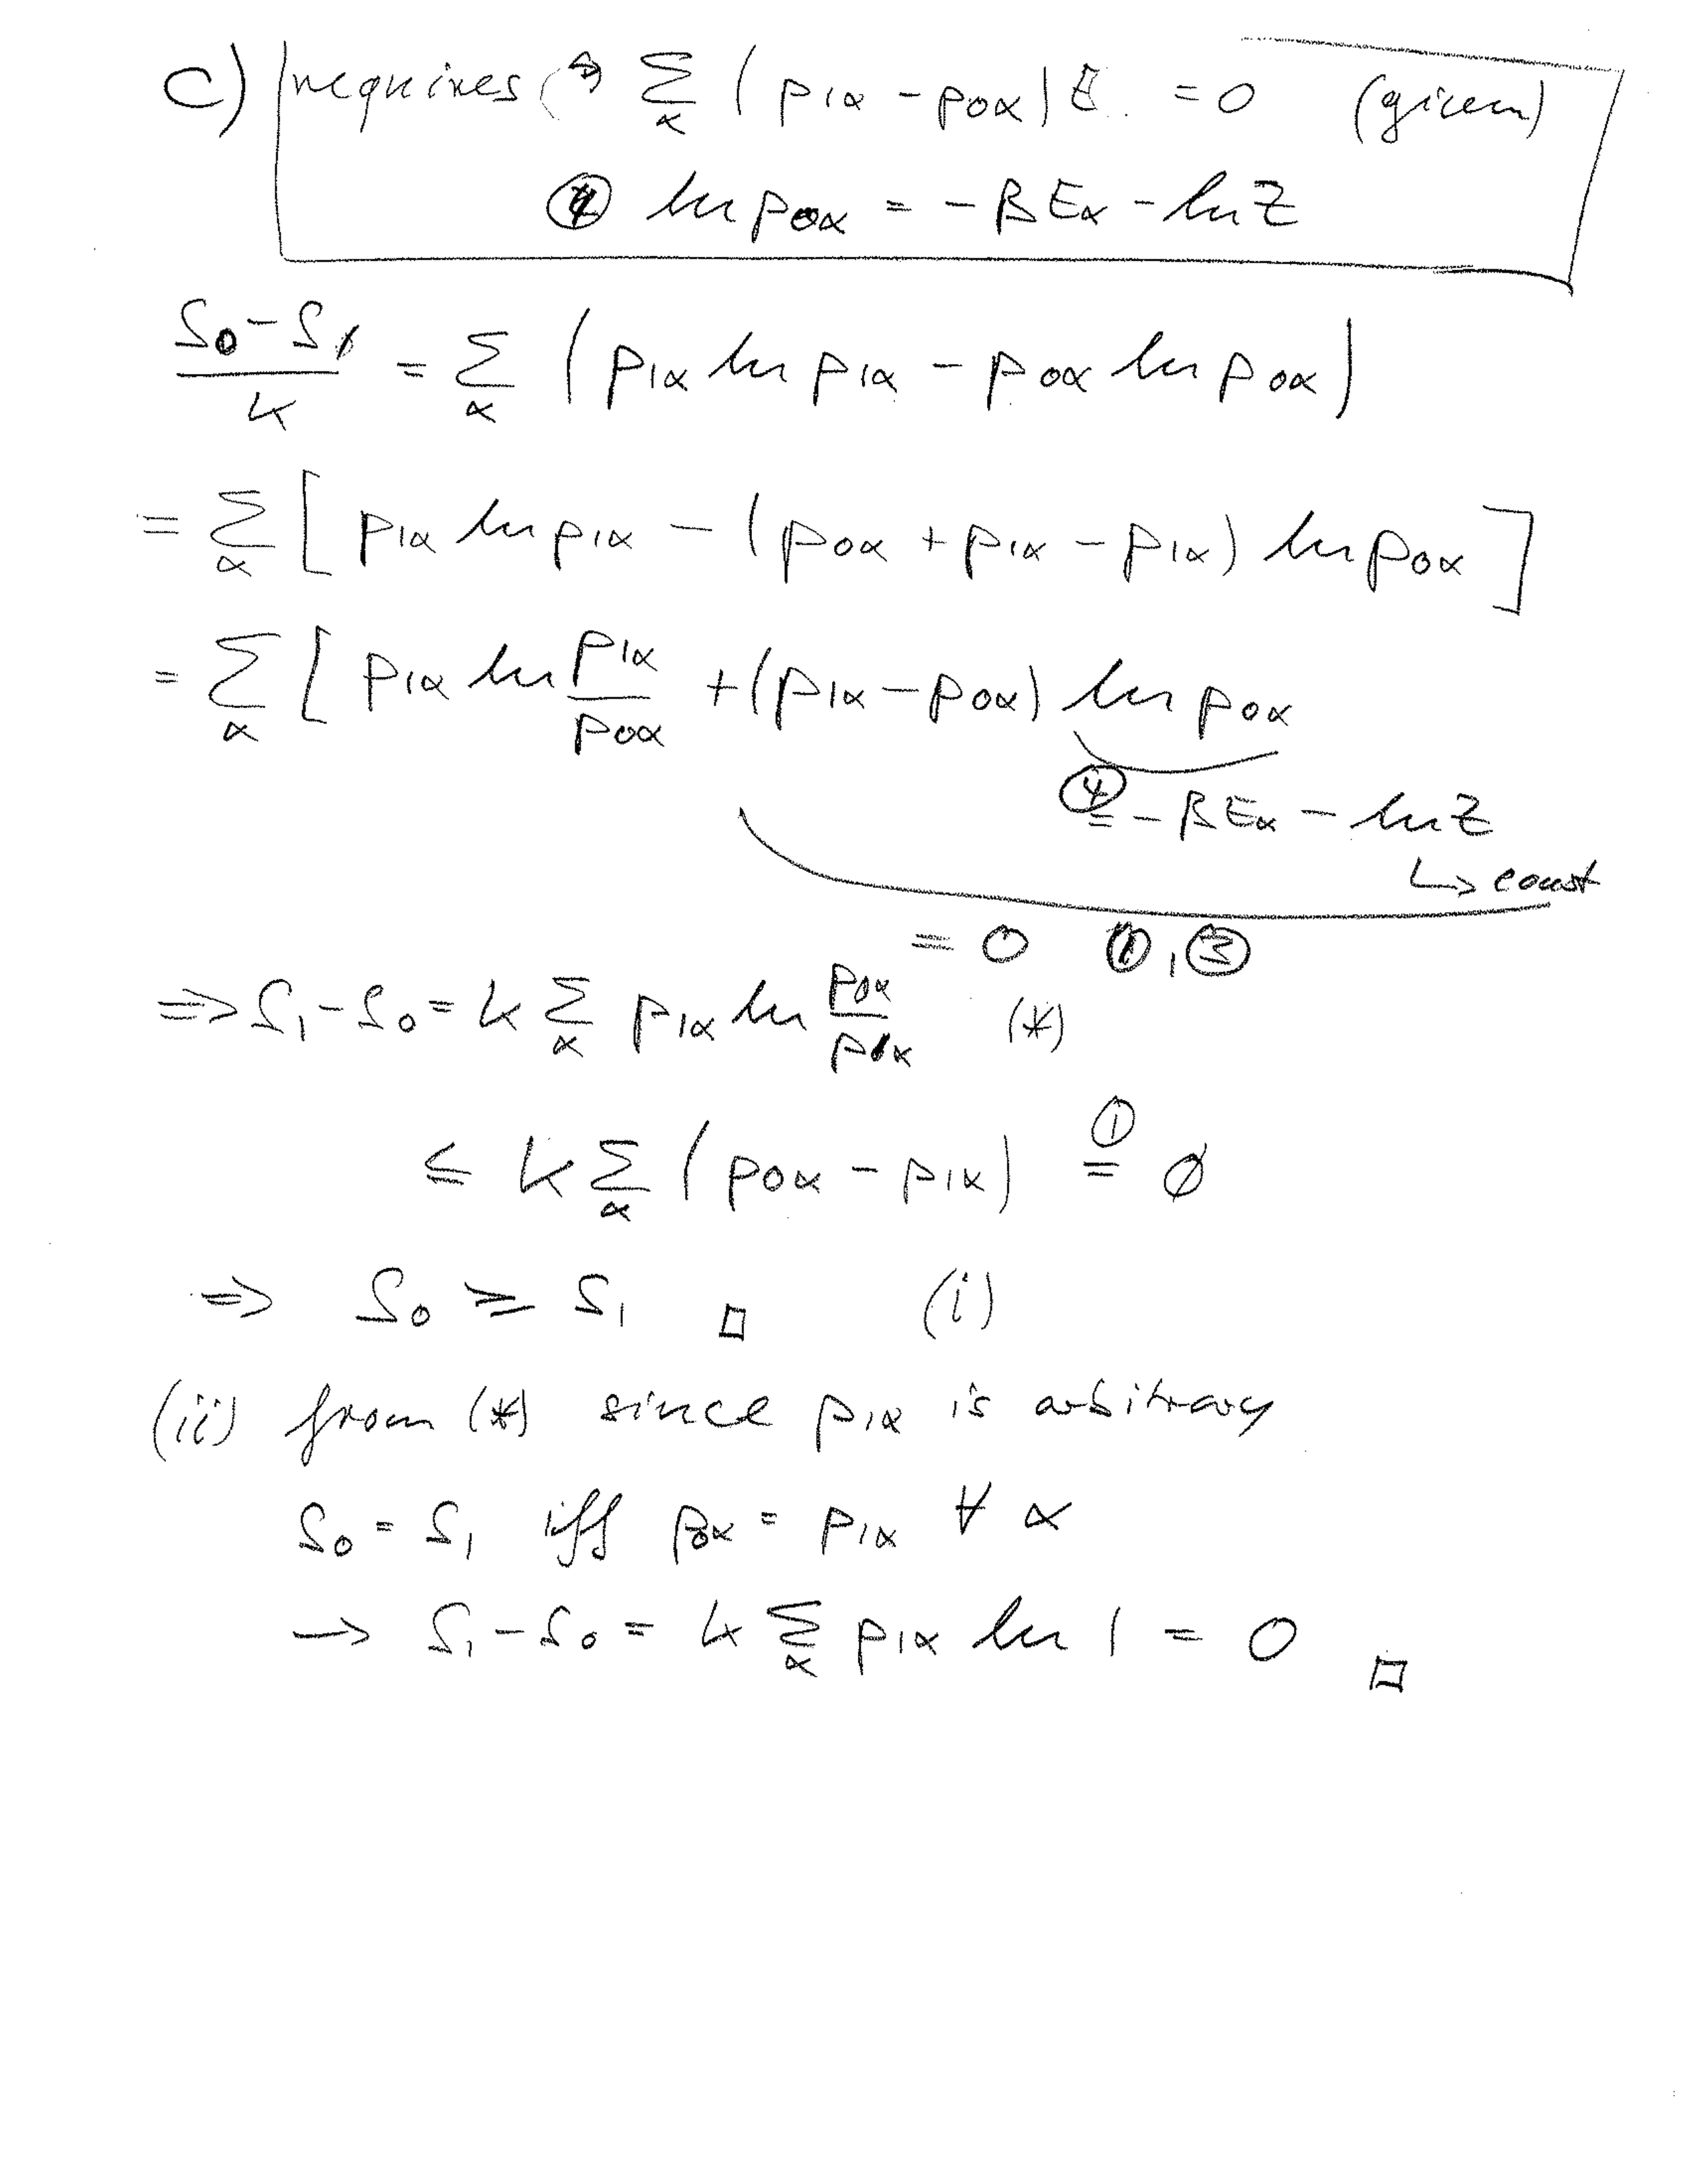 c) requires Σ_α (p_1α - p_0α) E = 0 (given)
④ ln p_0α = - β E_α - ln Z
(S_0 - S_1)/k = Σ_α ( p_1α ln p_1α - p_0α ln p_0α )
= Σ_α [ p_1α ln p_1α - ( p_0α + p_1α - p_1α ) ln p_0α ]
= Σ_α [ p_1α ln p_1α/p_0α + ( p_1α - p_0α ) ln p_0α
④ = - β E_α - ln Z
↳ const
= 0 ①, ③
⇒ S_1 - S_0 = k Σ_α p_1α ln p_0α/p_1α (*)
≤ k Σ_α ( p_0α - p_1α ) ①= 0
⇒ S_0 ≥ S_1 □ (i)
(ii) from (*) since p_1α is arbitrary
S_0 = S_1 iff p_0α = p_1α ∀ α
→ S_1 - S_0 = k Σ_α p_1α ln 1 = 0 □